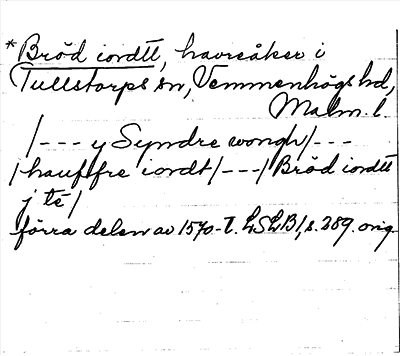 *Bröd iordtt, havreåker i
Tullstorps sn, Vemmenhögs hd,
Malm. l.
/--- y Syndre wongh/---
/hauffre iordt/---/Bröd iordtt
j té/
förra delen av 1570-t. LSLB1, s. 289. orig.